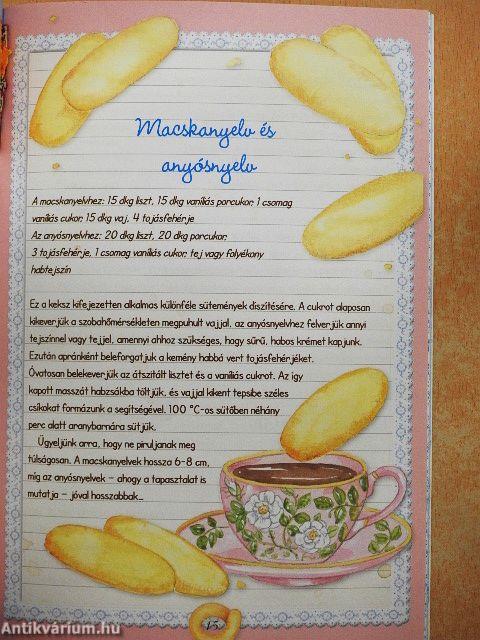 Macskanyelv és
anyósnyelv
A macskanyelvhez: 15 dkg liszt, 15 dkg vaníliás porcukor, 1 csomag
vaníliás cukor, 15 dkg vaj, 4 tojásfehérje
Az anyósnyelvhez: 20 dkg liszt, 20 dkg porcukor,
3 tojásfehérje, 1 csomag vaníliás cukor, tej vagy folyékony
habtejszín
Ez a keksz kifejezetten alkalmas különféle sütemények díszítésére. A cukrot alaposan
kikeverjük a szobahőmérsékleten megpuhult vajjal, az anyósnyelvhez felverjük annyi
tejszínnel vagy tejjel, amennyi ahhoz szükséges, hogy sűrű, habos krémet kapjunk.
Ezután apránként beleforgatjuk a kemény habbá vert tojásfehérjéket.
Óvatosan belekeverjük az átszitált lisztet és a vaníliás cukrot. Az így
kapott masszát habzsákba töltjük, és vajjal kikent tepsibe széles
csíkokat formázunk a segítségével. 100 °C-os sütőben néhány
perc alatt aranybarnára sütjük.
Ügyeljünk arra, hogy ne piruljanak meg
túlságosan. A macskanyelvek hossza 6-8 cm,
míg az anyósnyelvek – ahogy a tapasztalat is
mutatja – jóval hosszabbak...
15
Antikvárium.hu